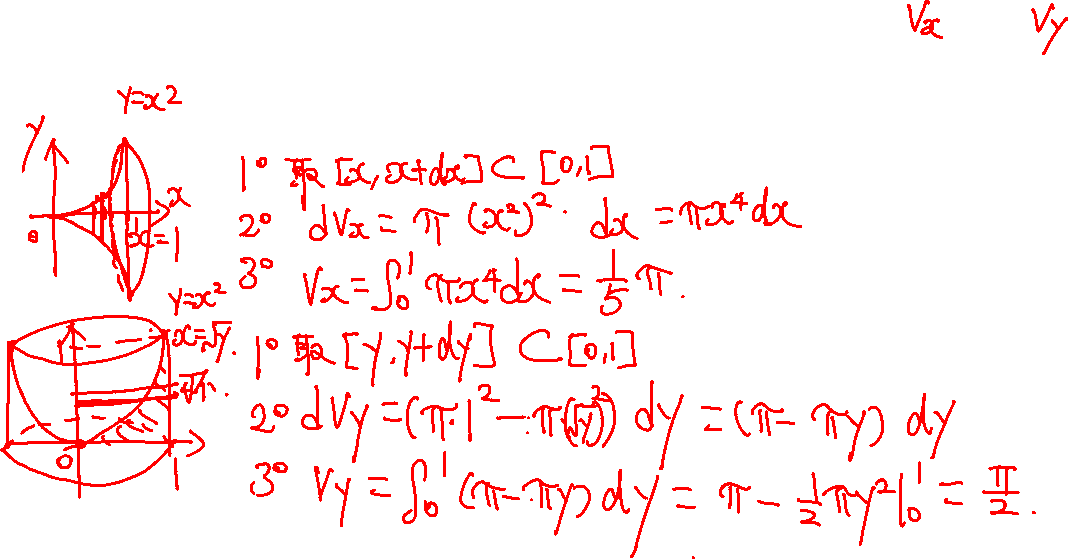 Vx Vy
y=x²
y
1° 取 [x, x+dx] ⊂ [0,1]
x
2° dVx = π (x²)²· dx = πx⁴dx
0
x=1
3° Vx = ∫₀¹ πx⁴dx = 1/5 π.
y=x²
x=√y.
1° 取 [y, y+dy] ⊂ [0,1]
2° dVy = (π·1² - π(√y)²) dy = (π - πy) dy
0
1
3° Vy = ∫₀¹ (π-πy) dy = π - 1/2 πy²|₀¹ = π/2.